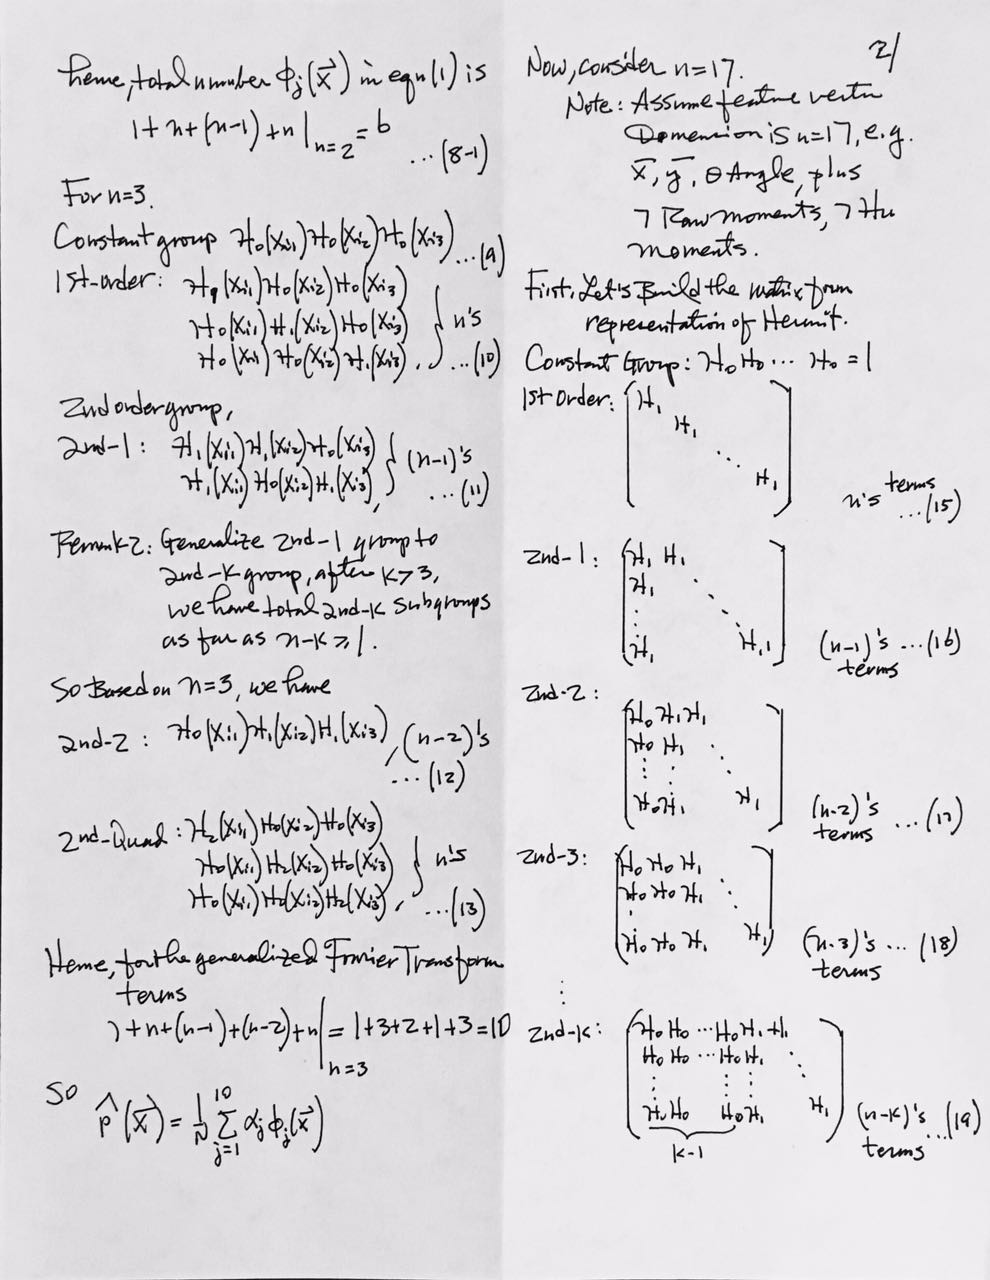 Hence, total number φj(x⃗) in eqn(1) is
1+n+(n-1)+n|n=2 = 6
...(8-1)
For n=3.
Constant group H0(xi1)H0(xi2)H0(xi3) ...(9)
1st-order: H1(xi1)H0(xi2)H0(xi3)
H0(xi1)H1(xi2)H0(xi3) } n's
H0(xi1)H0(xi2)H1(xi3), ...(10)
2nd order group,
2nd-1: H1(xi1)H1(xi2)H0(xi3) } (n-1)'s
H1(xi1)H0(xi2)H1(xi3), ...(11)
Remark2: Generalize 2nd-1 group to
2nd-K group, after K>3,
we have total 2nd-K subgroups
as far as n-K≥1.
So Based on n=3, we have
2nd-2: H0(xi1)H1(xi2)H1(xi3), (n-2)'s
...(12)
2nd-Quad: H2(xi1)H0(xi2)H0(xi3)
H0(xi1)H2(xi2)H0(xi3) } n's
H0(xi1)H0(xi2)H2(xi3), ...(13)
Hence, for the generalized Fourier Transform
terms
1+n+(n-1)+(n-2)+n|n=3 = 1+3+2+1+3=10
So
p̂(x⃗) = 1/N Σ j=1 10 αj φj(x⃗)
2/
Now, consider n=17.
Note: Assume feature vector
Domension is n=17, e.g.
x̄, ȳ, θ Angle, plus
7 Raw moments, 7 Hu
moments.
First, Let's Build the matrix form
representation of Hermit.
Constant Group: H0H0... H0 = 1
1st Order: ( H1
H1
⋱
H1 ) n's terms ...(15)
2nd-1: ( H1 H1
H1 ⋱
⋮
H1 H1 ) (n-1)'s terms ...(16)
2nd-2:
( H0 H1 H1
H0 H1 ⋱
⋮ ⋮
H0 H1 H1 ) (n-2)'s terms ...(17)
2nd-3: ( H0 H0 H1
H0 H0 H1 ⋱
⋮
H0 H0 H1 H1 ) (n-3)'s terms ...(18)
⋮
2nd-K: ( H0 H0 ... H0 H1 H1
H0 H0 ... H0 H1 ⋱
⋮ ⋮ ⋮
H0 H0 H0 H1 H1 ) (n-K)'s terms ...(19)
K-1